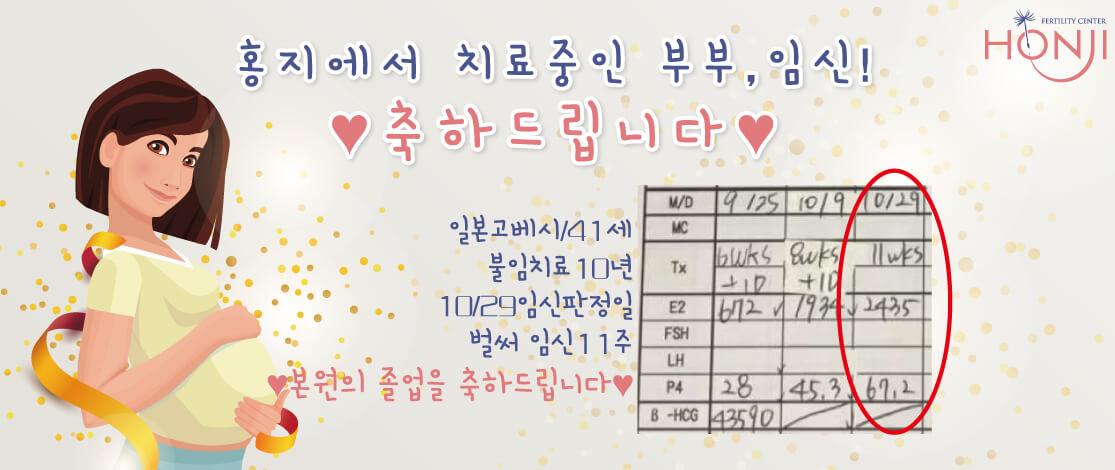 FERTILITY CENTER
HONJI
홍지에서 치료중인 부부,임신!
♥축하드립니다♥
일본고베시/41세
불임치료10년
10/29임신판정일
벌써 임신11주
♥본원의 졸업을 축하드립니다♥
M/D 9/25 10/9 10/29
MC
Tx 6wks 8wks 11wks
+1D +1D
E2 672 1934 2435
FSH
LH
P4 28 45.3 67.2
B -HCG 43590